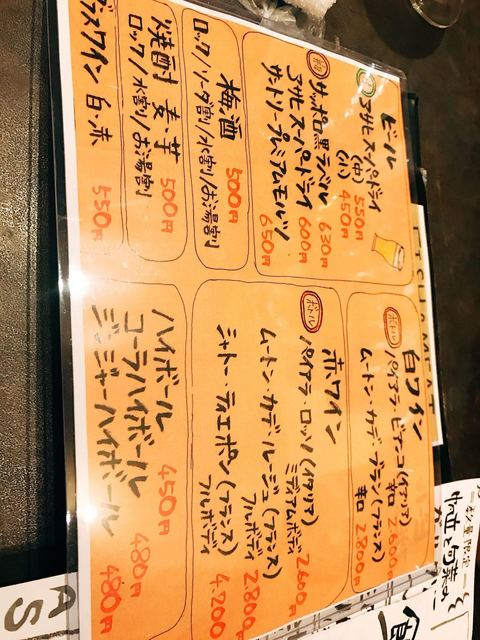 ビール
生 アサヒスーパードライ
(中) 550円
(小) 450円
サッポロ黒ラベル 630円
アサヒスーパードライ 600円
サントリープレミアムモルツ 650円
梅酒 500円
ロック/ソーダ割/水割/お湯割
焼酎 麦・芋 500円
ロック/水割/お湯割
グラスワイン 白・赤 550円
白ワイン
ボトル
パイアラ・ビアンコ(イタリア)
辛口 2600円
ムートン・カデ・ブラン(フランス)
辛口 2800円
赤ワイン
ボトル
パイアラ・ロッソ(イタリア)
ミディアムボディ 2600円
ムートン・カデ・ルージュ(フランス)
フルボディ 2800円
シャトー・ディエポン(フランス)
フルボディ 4,200円
ハイボール 450円
コーラハイボール 480円
ジンジャーハイボール 480円
数量限定
AS